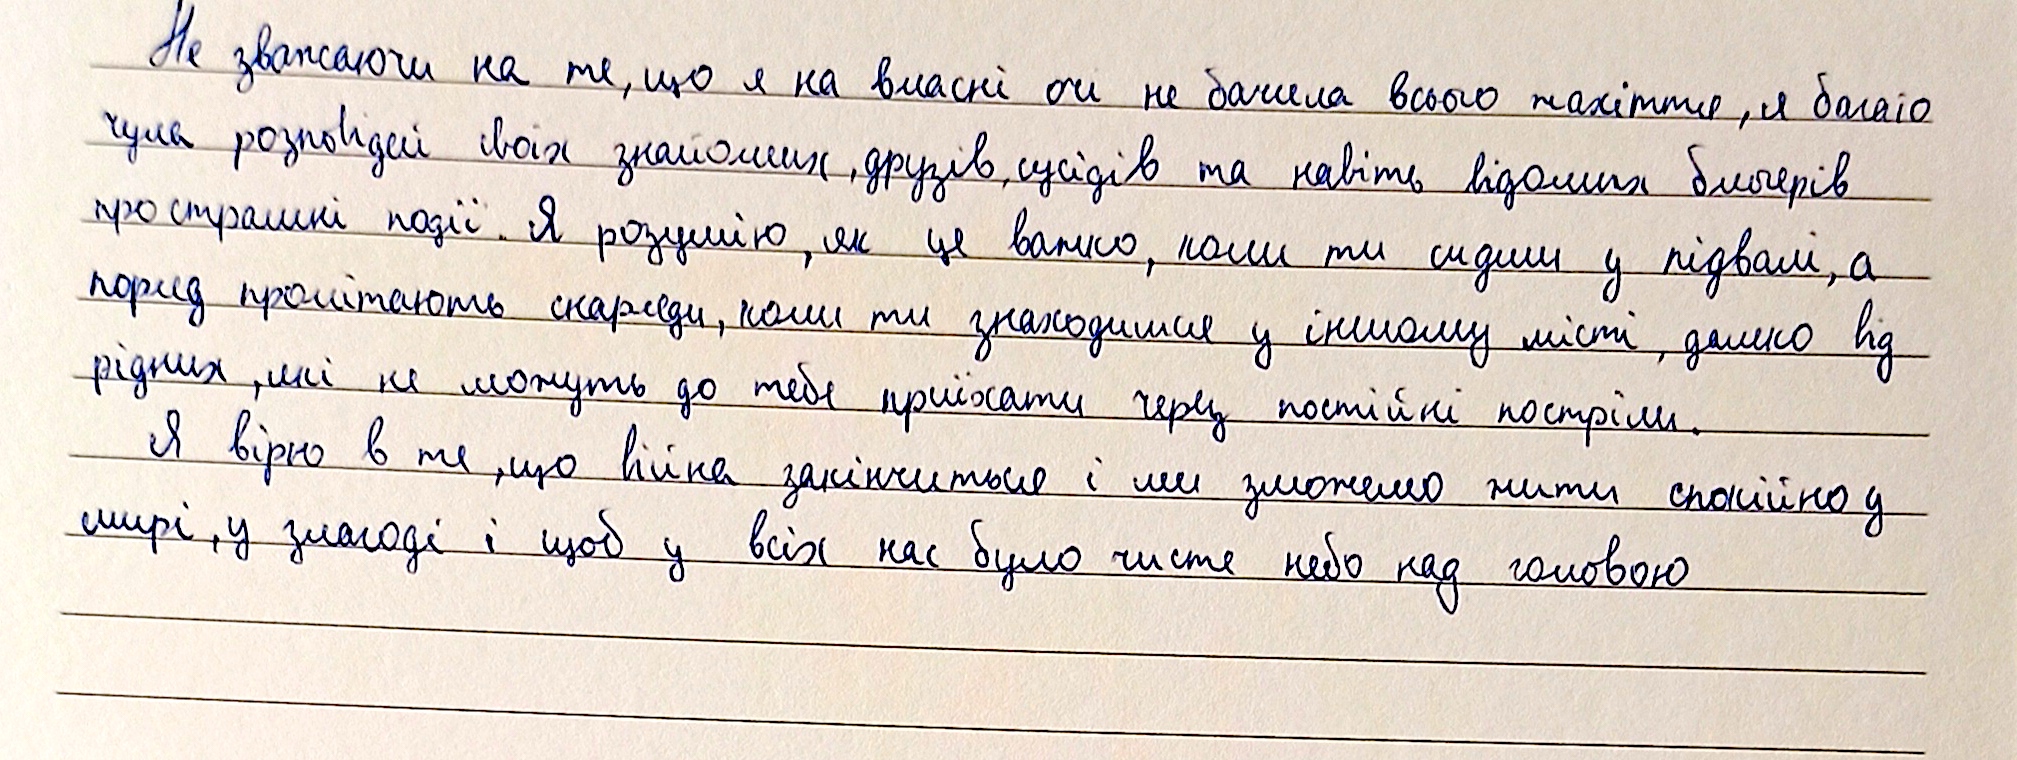 Не зважаючи на те, що я на власні очі не бачила всього жахіття, я багато
чула розповідей своїх знайомих, друзів, сусідів та навіть відомих блогерів
про страшні події. Я розумію, як це важко, коли ти сидиш у підвалі, а
поряд пролітають снаряди, коли ти знаходишся у іншому місті, далеко від
рідних, які не можуть до тебе приїхати через постійні постріли.
Я вірю в те, що війна закінчиться і ми зможемо жити спокійно у
мирі, у злагоді і щоб у всіх нас було чисте небо над головою